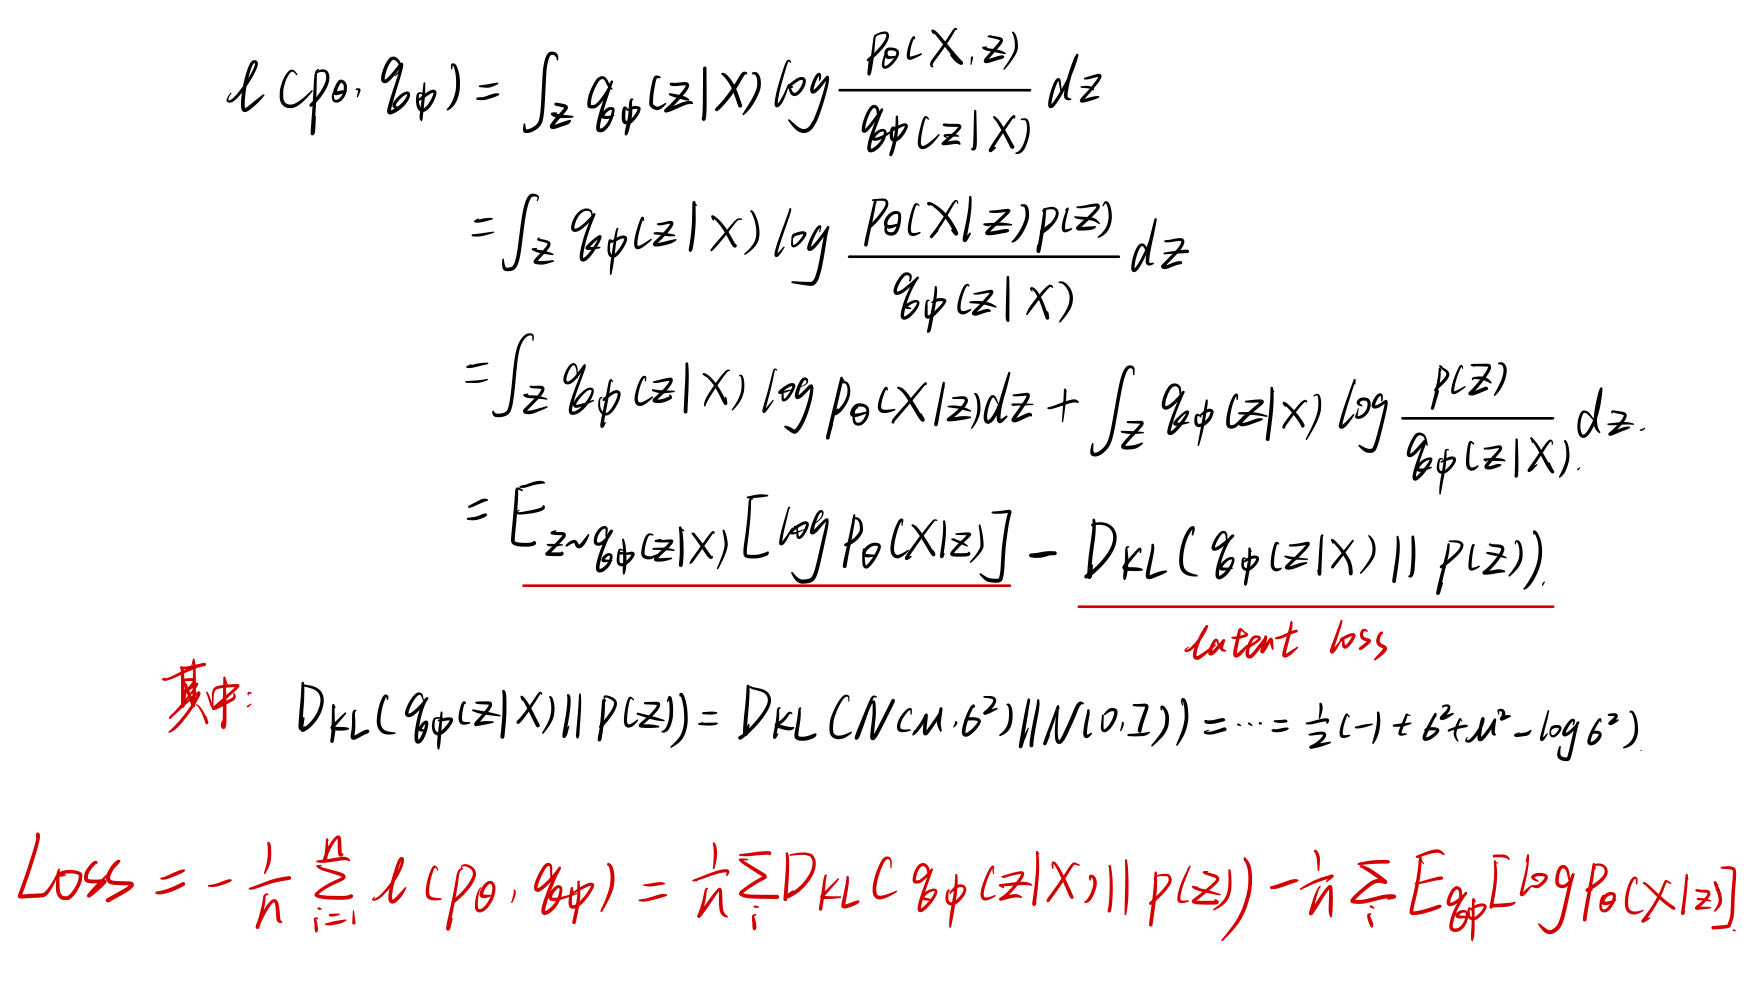 l(pθ, qφ) = ∫_z qφ(z|X) log \frac{pθ(X,z)}{qφ(z|X)} dz
= ∫_z qφ(z|X) log \frac{pθ(X|z)p(z)}{qφ(z|X)} dz
= ∫_z qφ(z|X) log pθ(X|z)dz + ∫_z qφ(z|X) log \frac{p(z)}{qφ(z|X)} dz.
= E_{z~qφ(z|X)} [log pθ(X|z)] - D_{KL}(qφ(z|X) || p(z)).
latent loss
其中: D_{KL}(qφ(z|X)||p(z)) = D_{KL}(N(μ,σ²)||N(0,I)) = ... = \frac{1}{2}(-1+σ²+μ²-logσ²)
Loss = -\frac{1}{n} \sum_{i=1}^{n} l(pθ, qφ) = \frac{1}{n} \sum_i D_{KL}(qφ(z|X)||p(z)) - \frac{1}{n} \sum_i E_{qφ}[log pθ(X|z)]